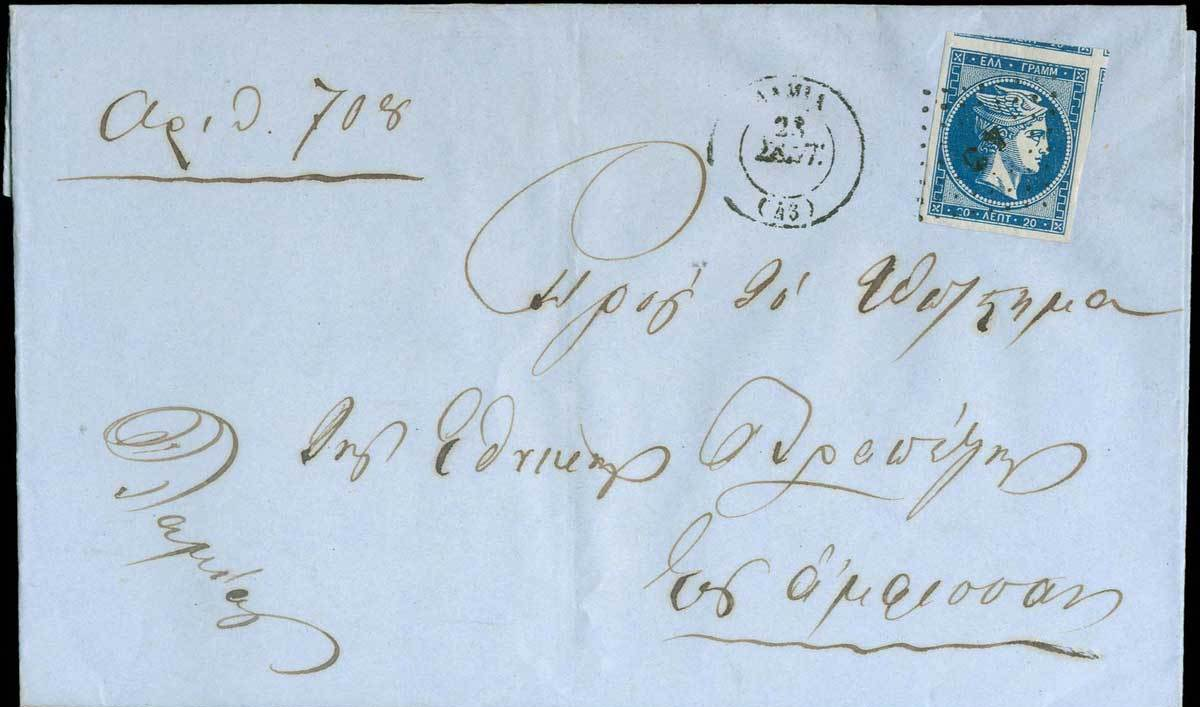 Αριθ. 708
ΛΑΜΙΑ
23
ΣΕΠΤ.
(43)
ΕΛΛ ΓΡΑΜΜ
20 ΛΕΠΤ 20
Προς το Υποκ/στημα
της Εθνικής Τραπέζης
Εις Άμφισσαν
Λαμίας